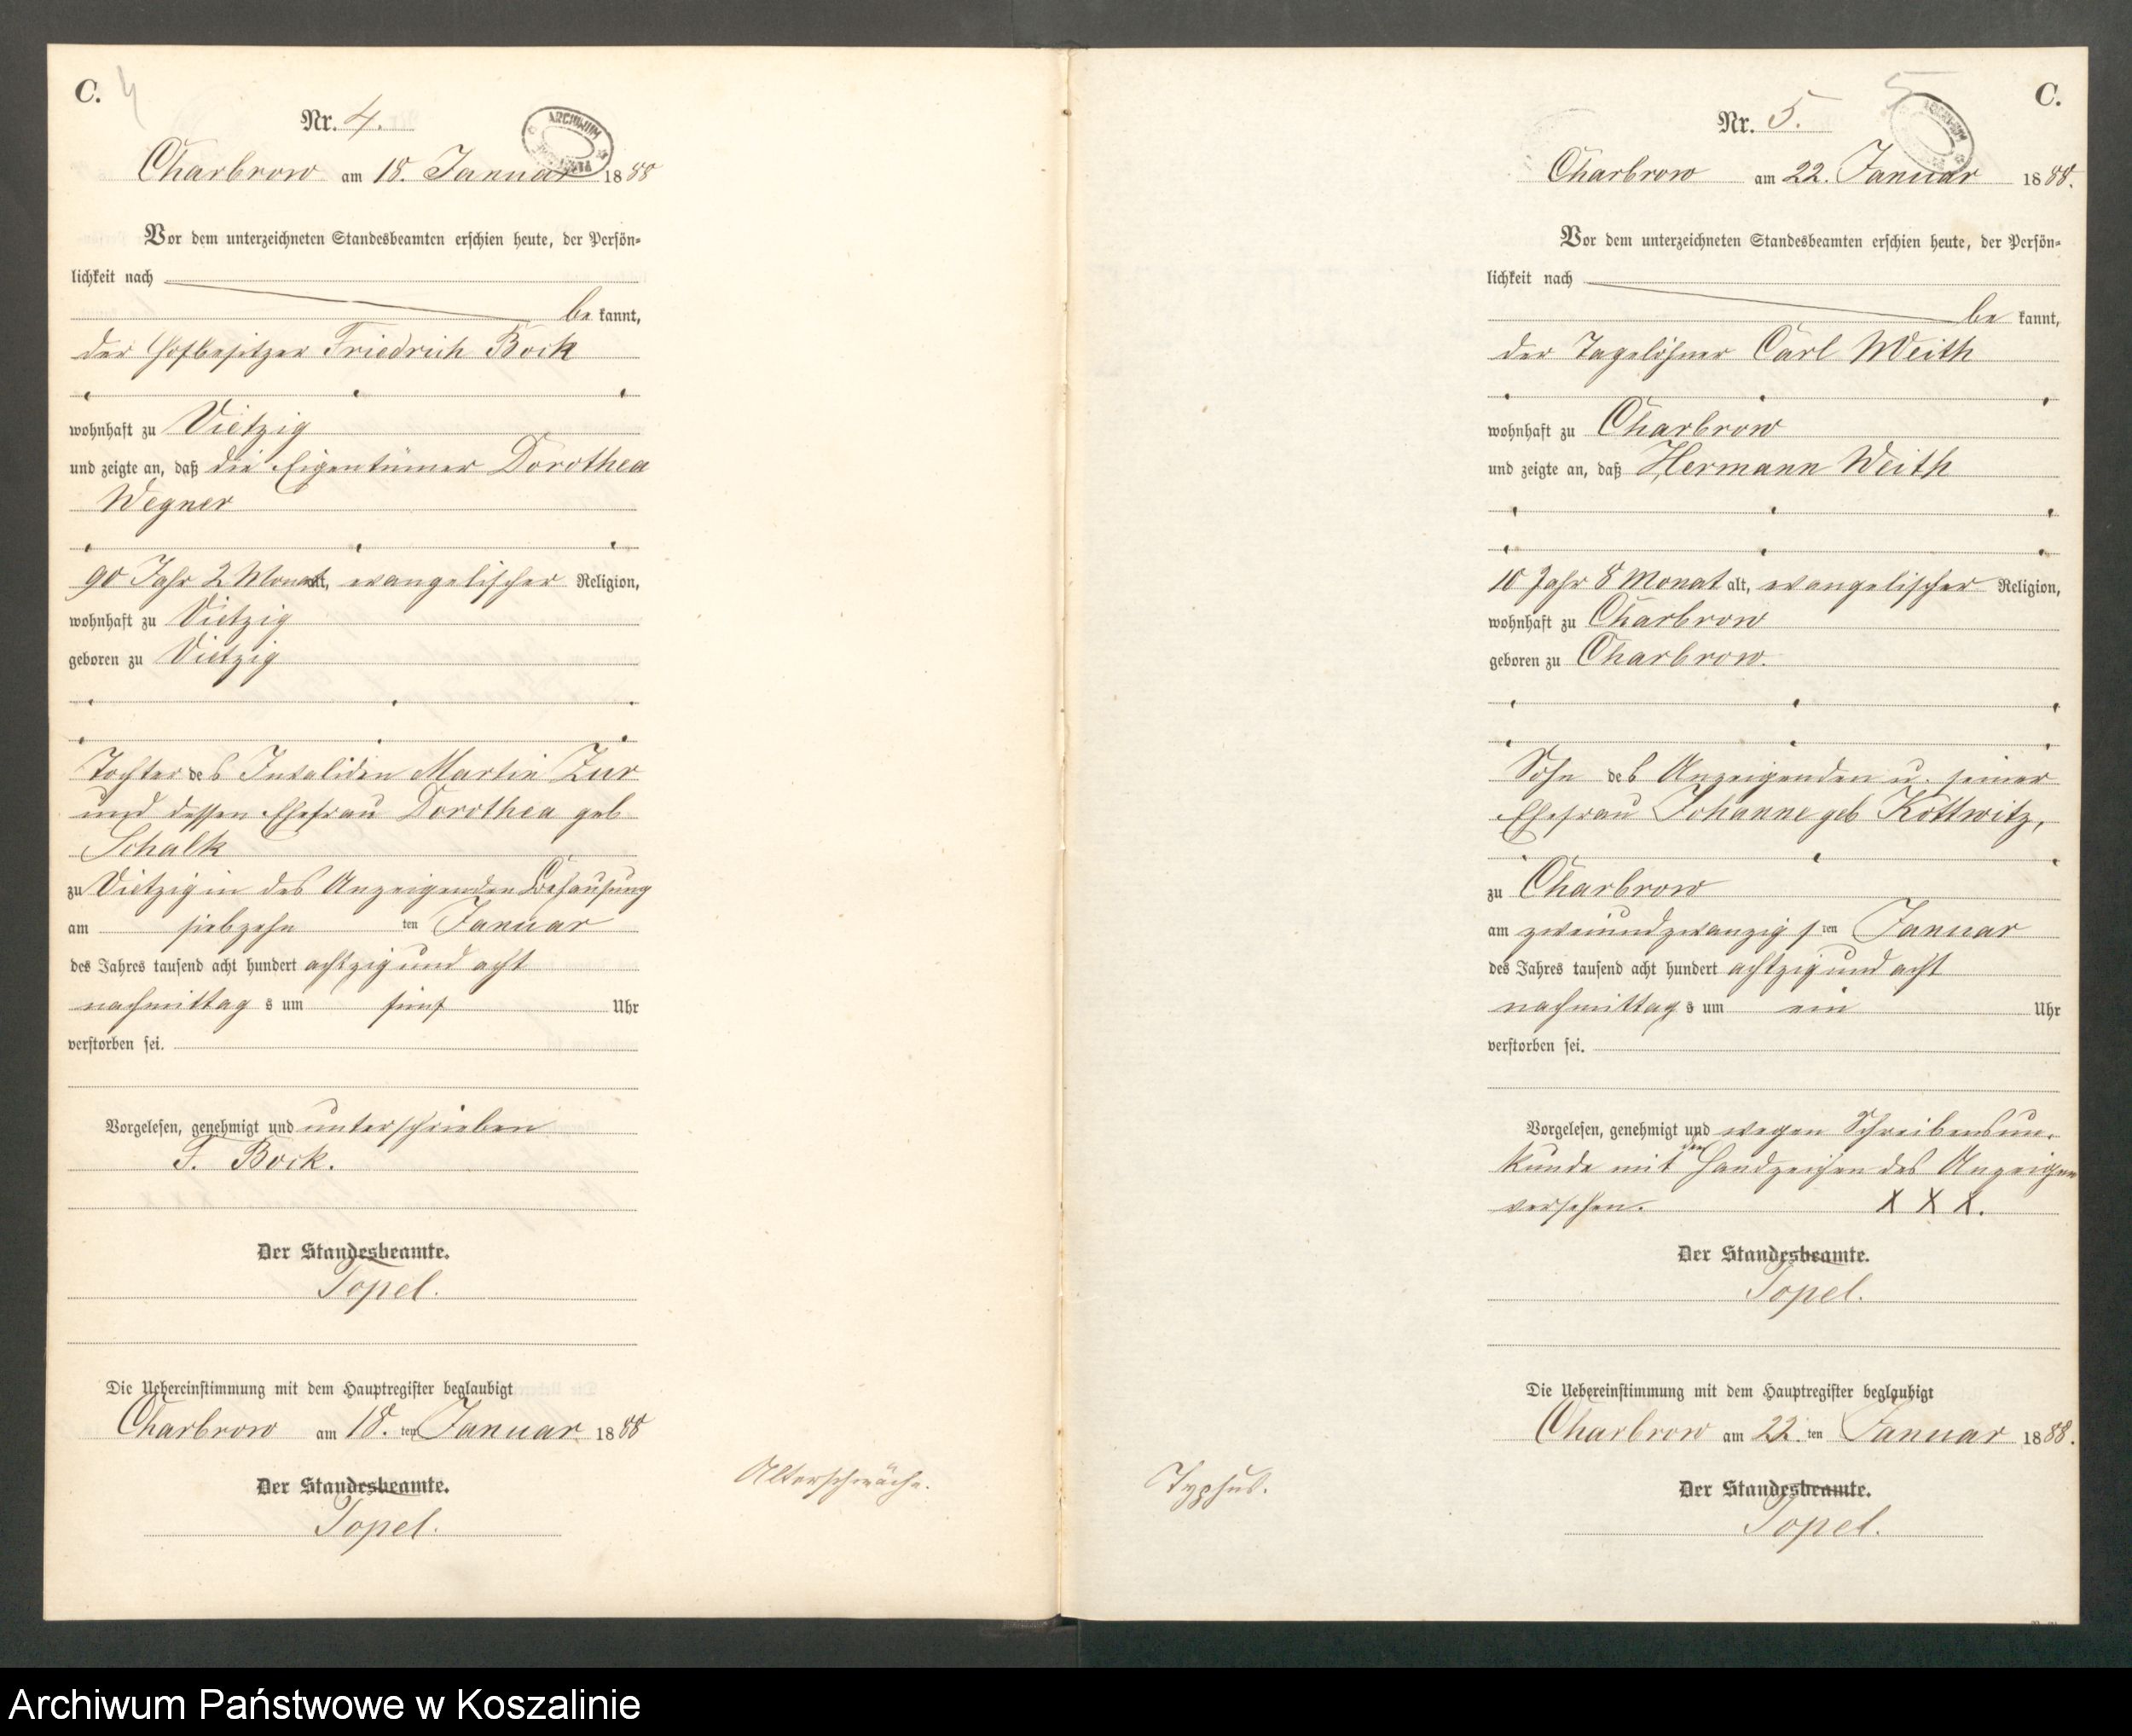 C. 4
Nr. 4.
ARCHIWUM
Charbrow am 18. Januar 1888
Vor dem unterzeichneten Standesbeamten erschien heute, der Persön-
lichkeit nach
be kannt,
der Hofbesitzer Friedrich Bock
wohnhaft zu Vietzig
und zeigte an, daß die Eigentümer Dorothea
Wegner
90 Jahr 2 Monat alt, evangelischer Religion,
wohnhaft zu Vietzig
geboren zu Vietzig
Tochter des Invaliden Martin Zur
und dessen Ehefrau Dorothea geb
Schalk
zu Vietzig in des Anzeigenden Behausung
am siebzehn ten Januar
des Jahres tausend acht hundert achtzig und acht
nachmittag s um fünf Uhr
verstorben sei.
Vorgelesen, genehmigt und unterschrieben
F. Bock.
Der Standesbeamte.
Topel.
Die Uebereinstimmung mit dem Hauptregister beglaubigt
Charbrow am 18. ten Januar 1888
Der Standesbeamte.
Topel.
Altersschwäche.
5 C.
Nr. 5.
Charbrow am 22. Januar 1888.
Vor dem unterzeichneten Standesbeamten erschien heute, der Persön-
lichkeit nach
be kannt,
der Tagelöhner Carl Weith
wohnhaft zu Charbrow
und zeigte an, daß Hermann Weith
10 Jahr 8 Monat alt, evangelischer Religion,
wohnhaft zu Charbrow
geboren zu Charbrow.
Sohn des Anzeigenden u. seiner
Ehefrau Johanne geb Kottwitz,
zu Charbrow
am zweiundzwanzig sten Januar
des Jahres tausend acht hundert achtzig und acht
nachmittag s um ein Uhr
verstorben sei.
Vorgelesen, genehmigt und wegen Schreibensun-
kunde mit den Handzeichen des Anzeigen
versehen. X X X.
Der Standesbeamte.
Topel.
Die Uebereinstimmung mit dem Hauptregister beglaubigt
Charbrow am 22. ten Januar 1888.
Der Standesbeamte.
Topel.
Typhus.
Archiwum Państwowe w Koszalinie